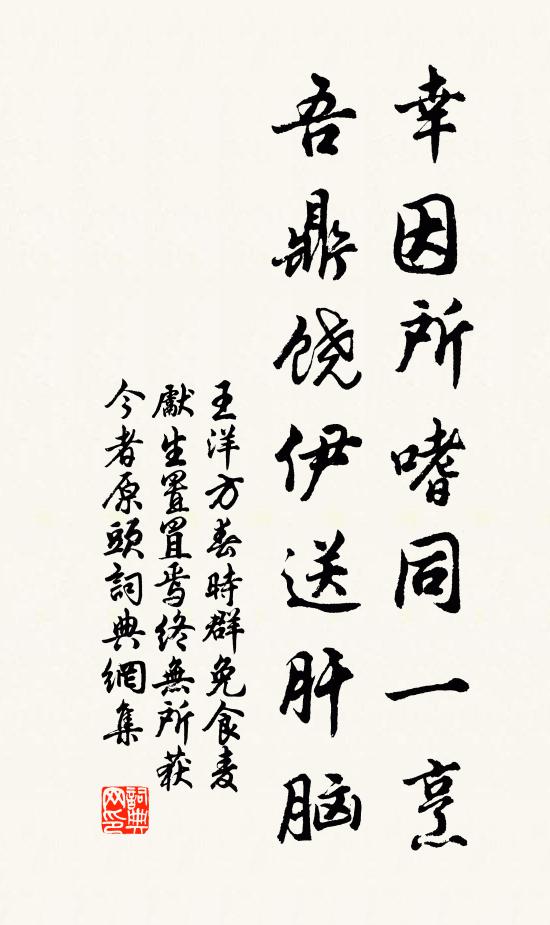 幸因所嗜同一烹
吾鼎饶伊送肝脑
王洋方春時群兔食麦
獻生置置焉终無所获
今者原頭詞典網集
詞典网印